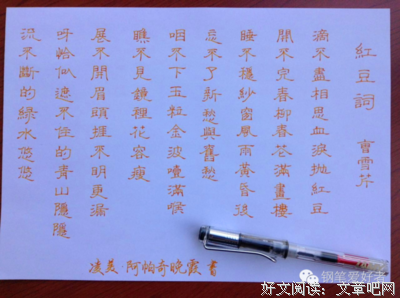 紅豆詞 曹雪芹
滴不盡相思血淚拋紅豆
開不完春柳春花滿畫樓
睡不穩紗窗風雨黃昏後
忘不了新愁與舊愁
咽不下玉粒金波噎滿喉
瞧不見鏡裡花容瘦
展不開眉頭捱不明更漏
呀恰似遮不住的青山隱隱
流不斷的綠水悠悠
凌美·阿帕奇晚霞書
钢笔爱好者
好文阅读：文章吧网